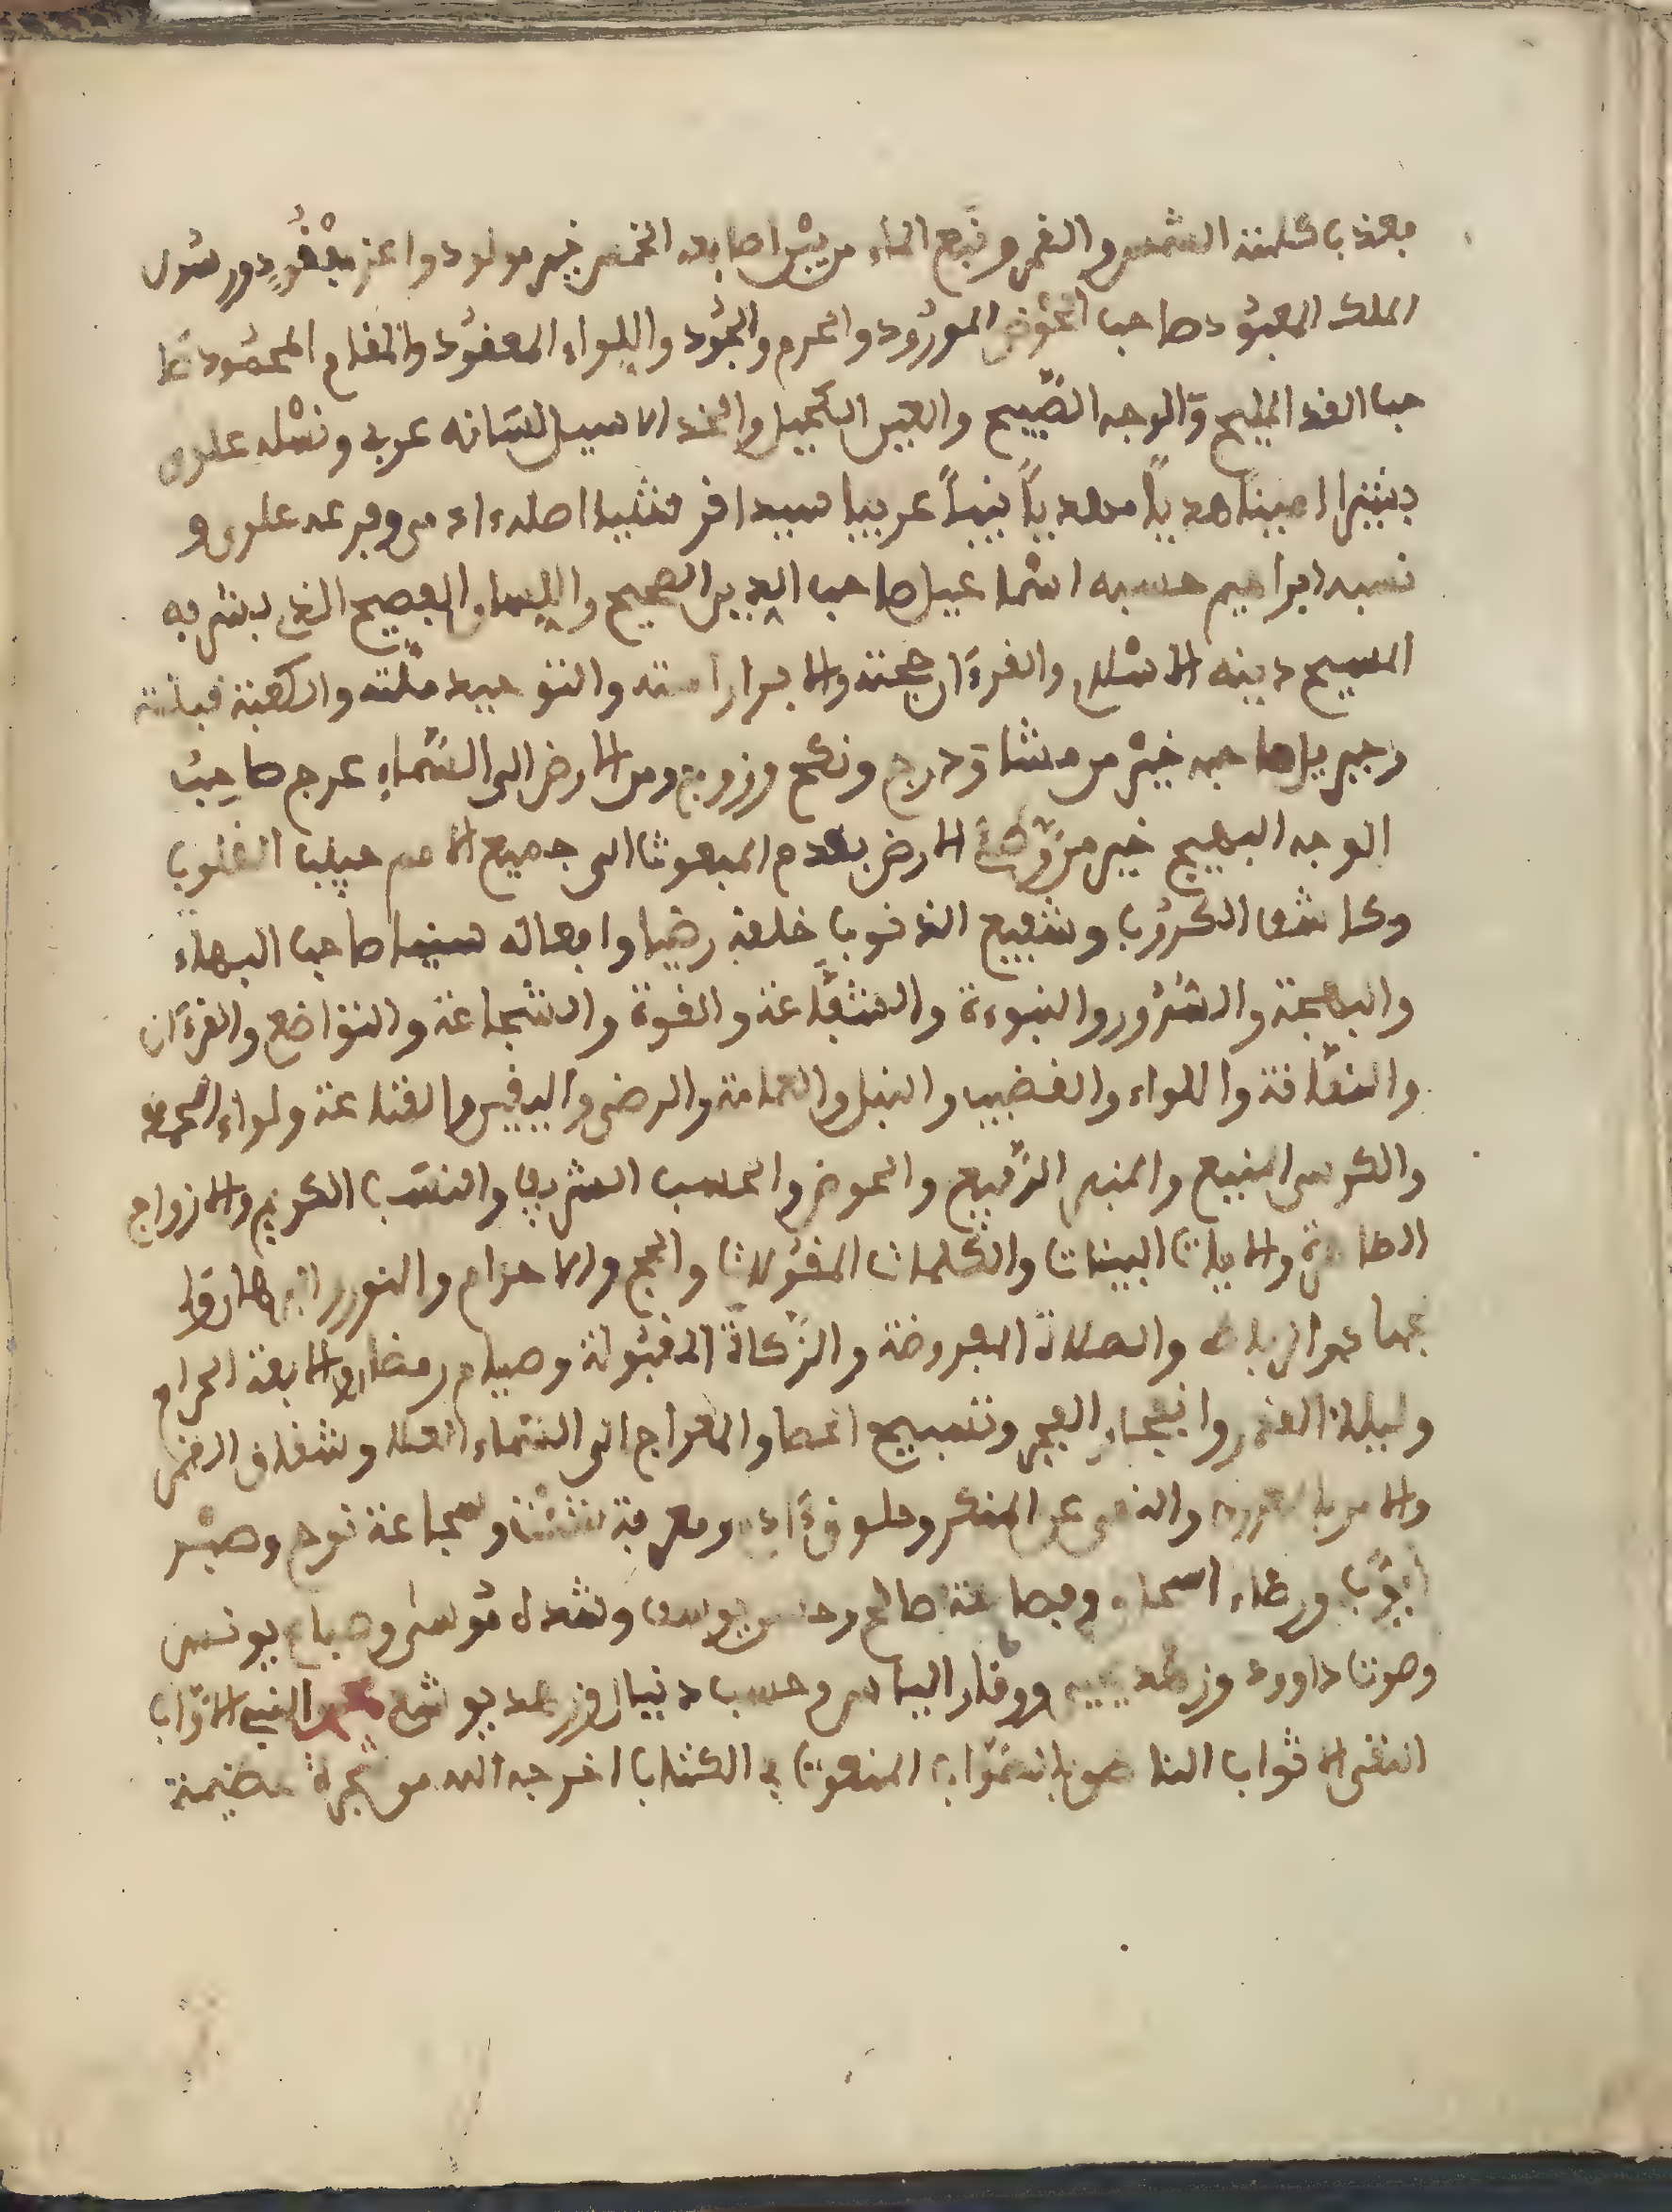 فقد كلمته الشمس والقمر ونبع الماء من بين اصابعه الخمس خير مولود واعز مفقود ورسول
الملك المعبود صاحب الحوض المورود والكرم والجود واللواء المعقود والمقام المحمود صا
حب القد المليح والوجه الصبيح والعين الكحيل والخد الاسيل لسانه عربي ونسله علوي
بشيرا امينا هديا مهديا نبيا عربيا سيدا قرشيا اصله ادمي وفرعه علوي و
نسبه ابراهيم حسبه اسماعيل صاحب الدين الصحيح واللسان الفصيح الذي بشر به
المسيح دينه الاسلام والقرءان حجته والابرار امته والتوحيد ملته والكعبة قبلته
وجبريل صاحبه خير من مشا ودرج ونكح وزوج ومن الارض الى السماء عرج صاحب
الوجه البهيج خير من وطئ الارض بقدم المبعوث الى جميع الامم حبيب القلوب
وكاشف الكروب وشفيع الذنوب خلقه رضيا وافعاله سنيا صاحب البهاء
والبهجة والسرور والنبوءة والشفاعة والقوة والشجاعة والتواضع والقرءان
والناقة واللواء والقضيب والنبل والعمامة والرضى واليقين والقناعة ولواء الحمد
والكرسي المنيع والمنبر الرفيع والحوض والحسب الشريف والنسب الكريم والازواج
الطاهرة والايات البينات والكلمات المقولات والحج والاحرام والنور
والصلاة المفروضة والزكاة المقبولة وصيام رمضان الحرام
وليلة القدر وانفجار الفجر وتسبيح الحصا والمعراج الى السماء العلا وشقاق القمر
والامر بالمعروف والنهي عن المنكر وخلق ءادم ومعرفة شيث وشجاعة نوح وصبر
ايوب ورضاء اسحاق وفصاحة صالح وحسن يوسف وشدة موسى يونس
وصوت داوود وزهد ووقار الياس وحسب دنيال يوشع النبي الاواب
الناطق بالصواب المنعوت في الكتاب اخرجه الله من